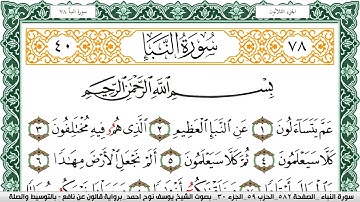 الجزء الثلاثون
سورة النبأ ٧٨
٧٨ سُورَةُ النَّبَإِ ٤٠
بِسْمِ اللَّهِ الرَّحْمَٰنِ الرَّحِيمِ
عَمَّ يَتَسَآءَلُونَ ١ عَنِ النَّبَإِ الْعَظِيمِ ٢ الَّذِى هُمْ فِيهِ مُخْتَلِفُونَ ٣
كَلَّا سَيَعْلَمُونَ ٤ ثُمَّ كَلَّا سَيَعْلَمُونَ ٥ أَلَمْ نَجْعَلِ الْأَرْضَ مِهَٰدًا ٦
سورة النبإ . الصفحة ٥٨٢ الحزب ٥٩ الجزء ٣٠ بصوت الشيخ يوسف نوح احمد . برواية قالون عن نافع - بالتوسيط والصلة